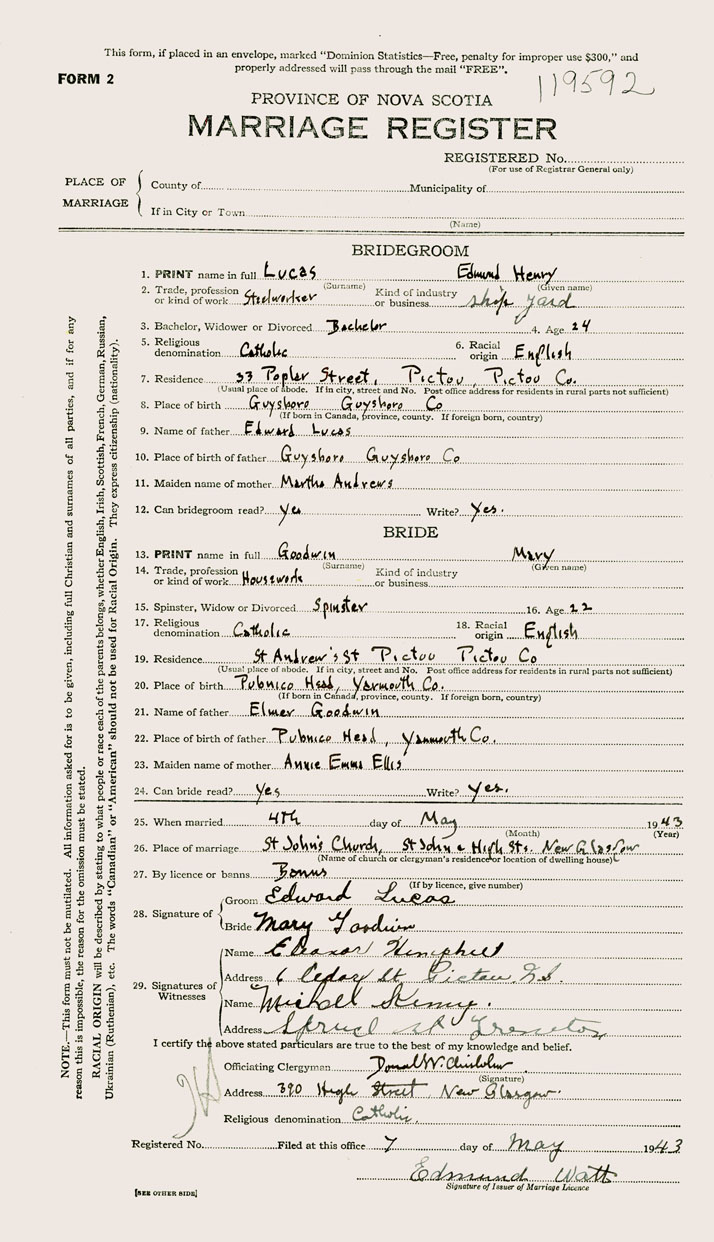 This form, if placed in an envelope, marked "Dominion Statistics—Free, penalty for improper use $300," and
properly addressed will pass through the mail "FREE".
FORM 2
119592
PROVINCE OF NOVA SCOTIA
MARRIAGE REGISTER
REGISTERED No.
(For use of Registrar General only)
PLACE OF MARRIAGE
County of Municipality of
If in City or Town
(Name)
BRIDEGROOM
1. PRINT name in full Lucas Edmund Henry
(Surname) (Given name)
2. Trade, profession or kind of work Steelworker Kind of industry or business ship yard
3. Bachelor, Widower or Divorced Bachelor 4. Age 24
5. Religious denomination Catholic 6. Racial origin English
7. Residence 33 Poplar Street, Pictou, Pictou Co.
(Usual place of abode. If in city, street and No. Post office address for residents in rural parts not sufficient)
8. Place of birth Guysboro Guysboro Co
(If born in Canada, province, county. If foreign born, country)
9. Name of father Edward Lucas
10. Place of birth of father Guysboro Guysboro Co
11. Maiden name of mother Martha Andrews
12. Can bridegroom read? yes Write? Yes.
BRIDE
13. PRINT name in full Goodwin Mary
(Surname) (Given name)
14. Trade, profession or kind of work Housework Kind of industry or business
15. Spinster, Widow or Divorced Spinster 16. Age 22
17. Religious denomination Catholic 18. Racial origin English
19. Residence St Andrew's St Pictou Pictou Co
(Usual place of abode. If in city, street and No. Post office address for residents in rural parts not sufficient)
20. Place of birth Pubnico Head, Yarmouth Co.
(If born in Canada, province, county. If foreign born, country)
21. Name of father Elmer Goodwin
22. Place of birth of father Pubnico Head, Yarmouth Co.
23. Maiden name of mother Annie Emma Ellis
24. Can bride read? Yes Write? Yes.
25. When married 4th day of May 1943
(Month) (Year)
26. Place of marriage St John's Church, St John & High Sts. New Glasgow
(Name of church or clergyman's residence or location of dwelling house)
27. By licence or banns Banns
(If by licence, give number)
28. Signature of
Groom Edward Lucas
Bride Mary Goodwin
29. Signatures of Witnesses
Name Eleanor Hemphill
Address 6 Cedar St Pictou N.S.
Name
Address St Trenton
I certify the above stated particulars are true to the best of my knowledge and belief.
Officiating Clergyman Donald W. Chisholm
(Signature)
Address 390 High Street, New Glasgow.
Religious denomination Catholic.
Registered No. Filed at this office 7 day of May 1943
Edmund Watt
Signature of Issuer of Marriage Licence
[SEE OTHER SIDE]
NOTE.—This form must not be mutilated. All information asked for is to be given, including full Christian and surnames of all parties, and if for any
reason this is impossible, the reason for the omission must be stated.
RACIAL ORIGIN will be described by stating to what people or race each of the parents belongs, whether English, Irish, Scottish, French, German, Russian,
Ukrainian (Ruthenian), etc. The words "Canadian" or "American" should not be used for Racial Origin. They express citizenship (nationality).